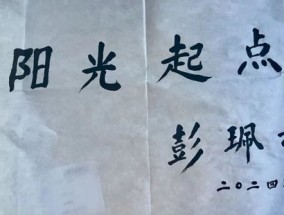 阳光起点
彭珮
二〇二四